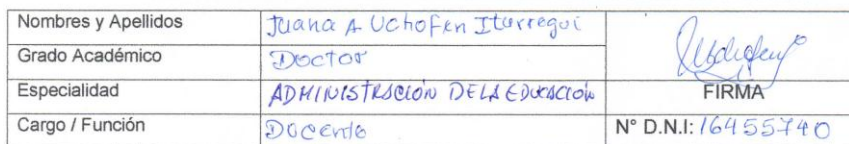 Nombres y Apellidos Juana A Uchofen Iturregui
Grado Académico Doctor
Especialidad ADMINISTRACIÓN DE LA EDUCACIÓN
FIRMA
Cargo / Función Docente N° D.N.I: 16455740